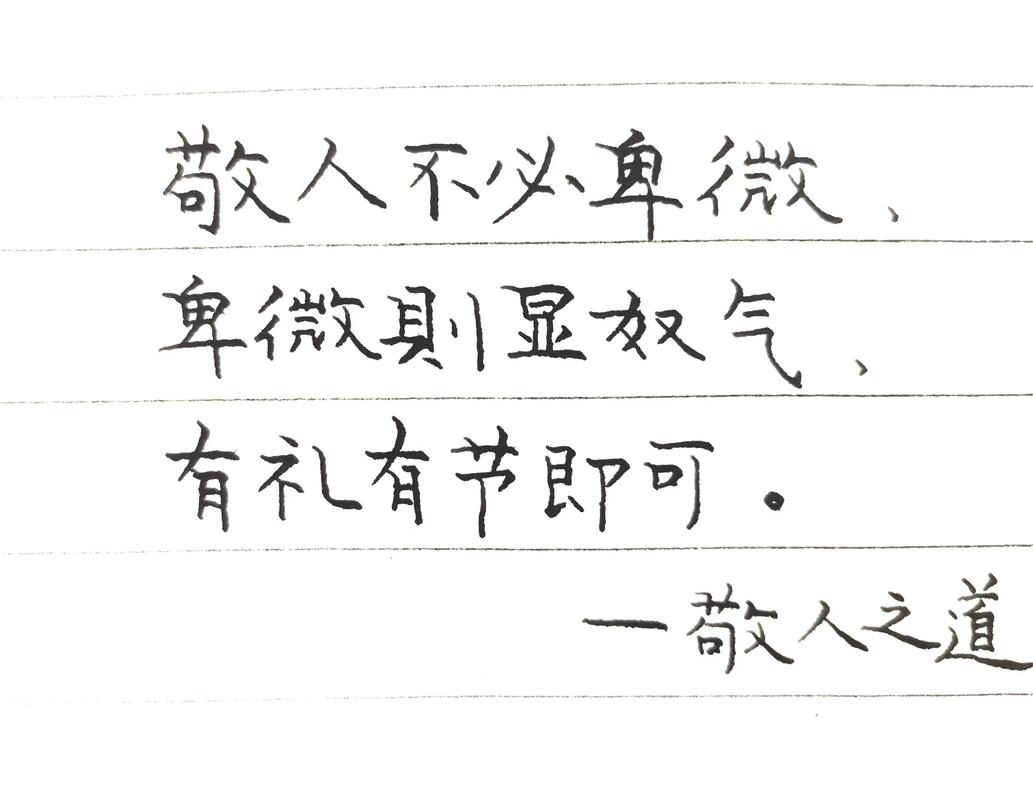 敬人不必卑微、
卑微則显奴气、
有礼有节即可。
—敬人之道